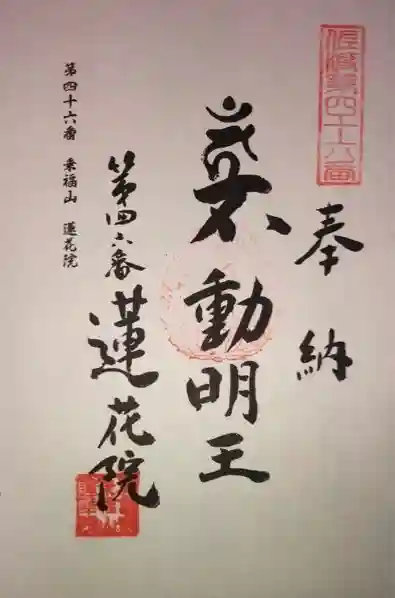 佐渡第四十六番
奉納
不動明王
第四六番
蓮花院
第四十六番 乗福山 蓮花院